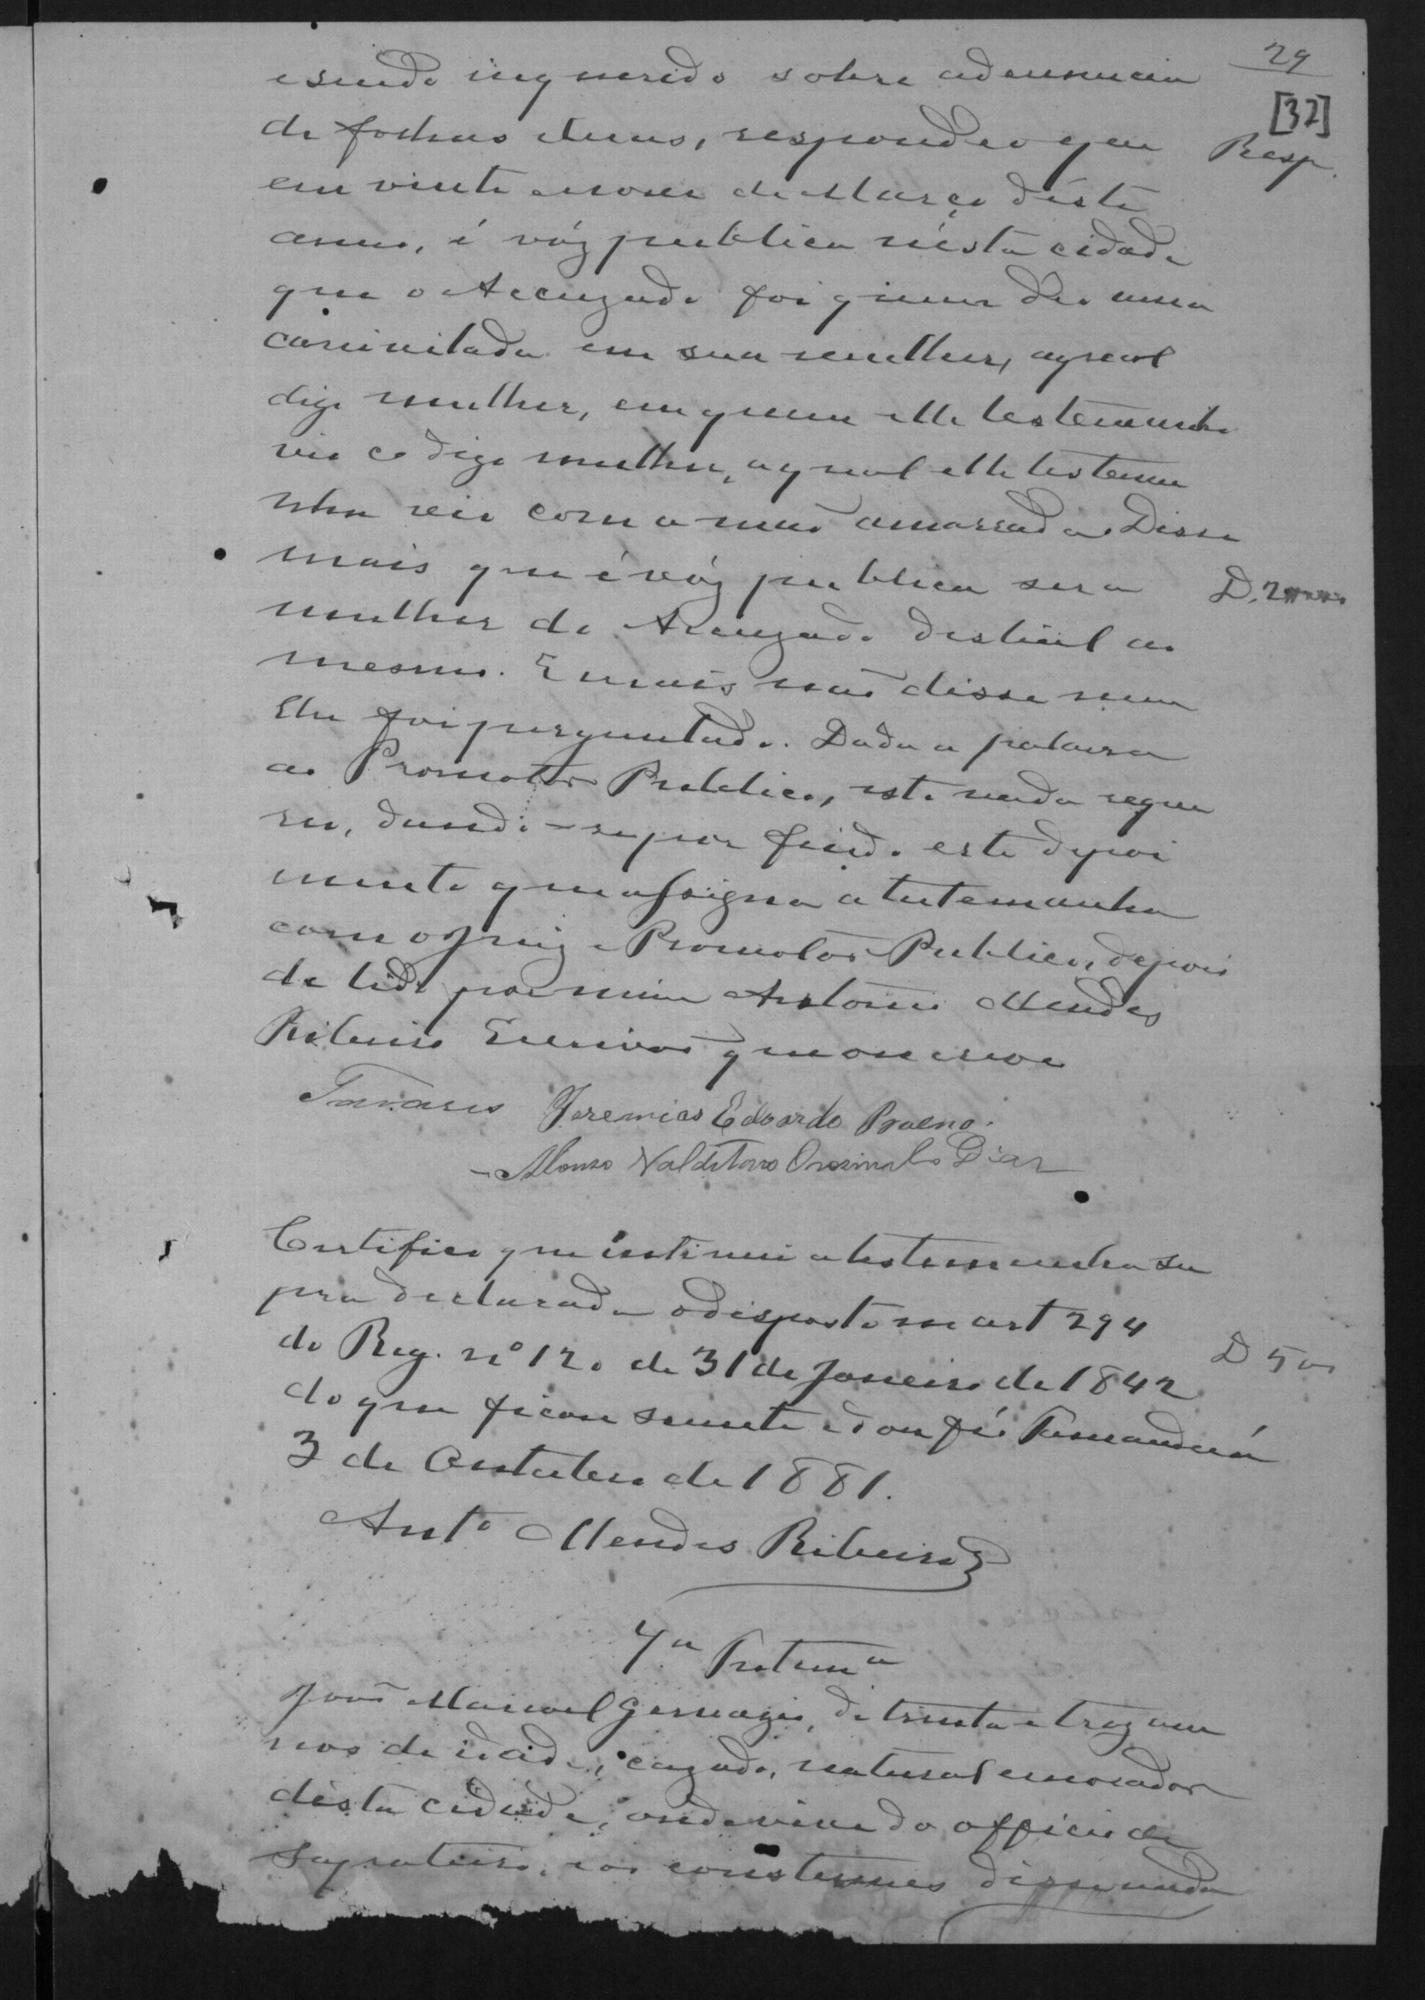 29
[32]
esendo inquerido sobre adenuncia
de folhas duas, respondeo que
Resp.
em vinte enove de Março d'este
anno, é vóz publica n'esta cidade
que o Accuzado foi quem deo uma
caninvitada em sua mulher, aqual
digo mulher, em quem elle testemunha
vio co digo mulher, aqual elle testemu
nha vio com a mão amarrada. Disse
mais que é vóz publica ser a
D. 2
mulher do Accuzado desleial ao
mesmo. E mais não disse nem
lhe foi perguntado. Dada a palavra
ao Promotor Publico, este nada reque
reu, dando-se por findo este depoi
mento que assigna a testemunha
com o Juiz e Promotor Publico, depois
de lido por mim Antonio Mendes
Ribeiro Escrivão que o escrevi
Tavares Jeremias Edoardo Bueno.
Alonso Valditaro Dias
Certifico que intimei a testemunha su
pra declarada odisposto no art 294
do Reg. nº 120 de 31 de Janeiro de 1842
D 500
do que ficou sciente e dou fé Tamanduá
3 de Outubro de 1881.
Antº Mendes Ribeiro
4ª Testemª
João Manoel Gervazio, de trinta e trez an
nos de idade, cazado, natural emorador
d'esta cidade, onde vive do officio de
Sapateiro, e aos costumes disse nada